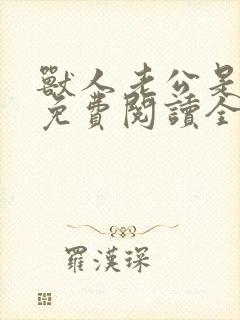 獸人老公是
免費閱讀全
羅漢琛